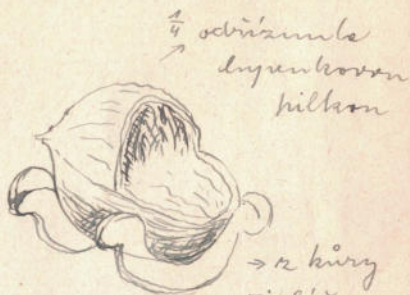 1/4 odřízumla
lupenkovou
pilkou
→ z kůry